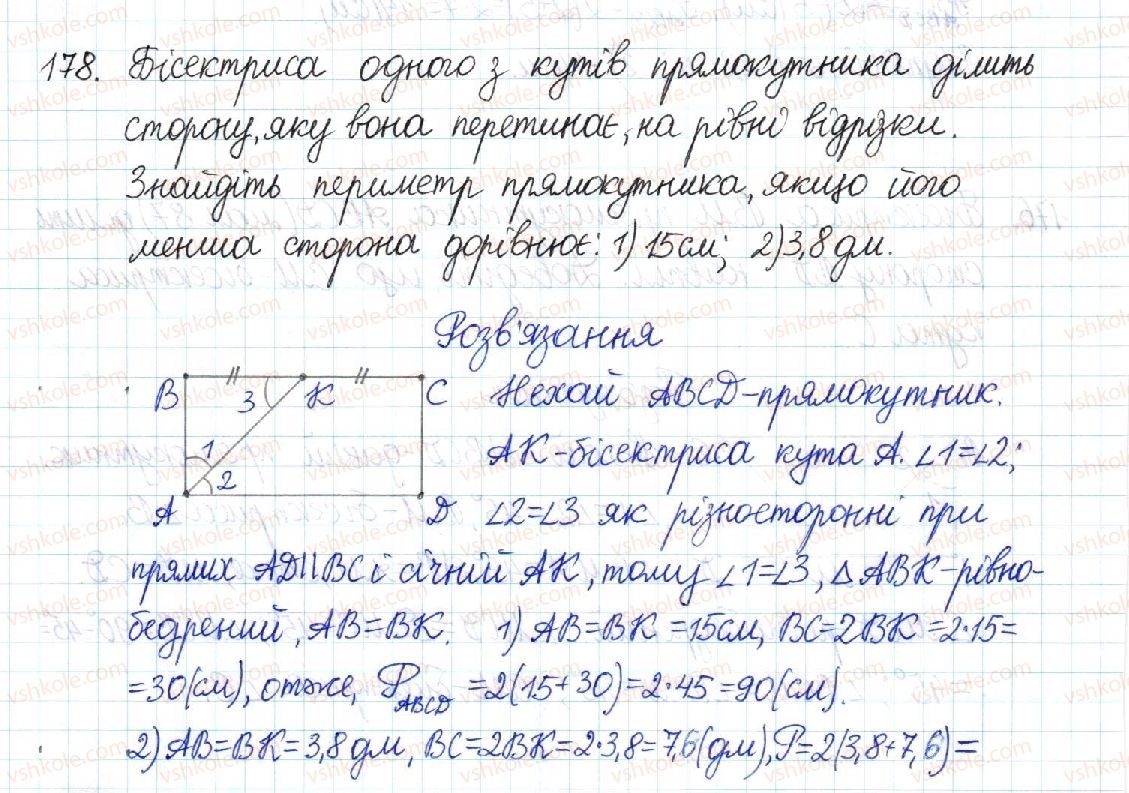 178. Бісектриса одного з кутів прямокутника ділить
сторону, яку вона перетинає, на рівні відрізки.
Знайдіть периметр прямокутника, якщо його
менша сторона дорівнює: 1) 15 см; 2) 3,8 дм.
Розв'язання
B 3 K C Нехай ABCD-прямокутник.
1 AK-бісектриса кута A. ∠1=∠2;
2
A D ∠2=∠3 як різносторонні при
прямих AD||BC і січній AK, тому ∠1=∠3, △ABK-рівно-
бедрений, AB=BK. 1) AB=BK=15см, BC=2BK=2·15=
=30(см), отже, P ABCD =2(15+30)=2·45=90(см).
2) AB=BK=3,8 дм, BC=2BK=2·3,8=7,6(дм), P=2(3,8+7,6)=
vshkole.com